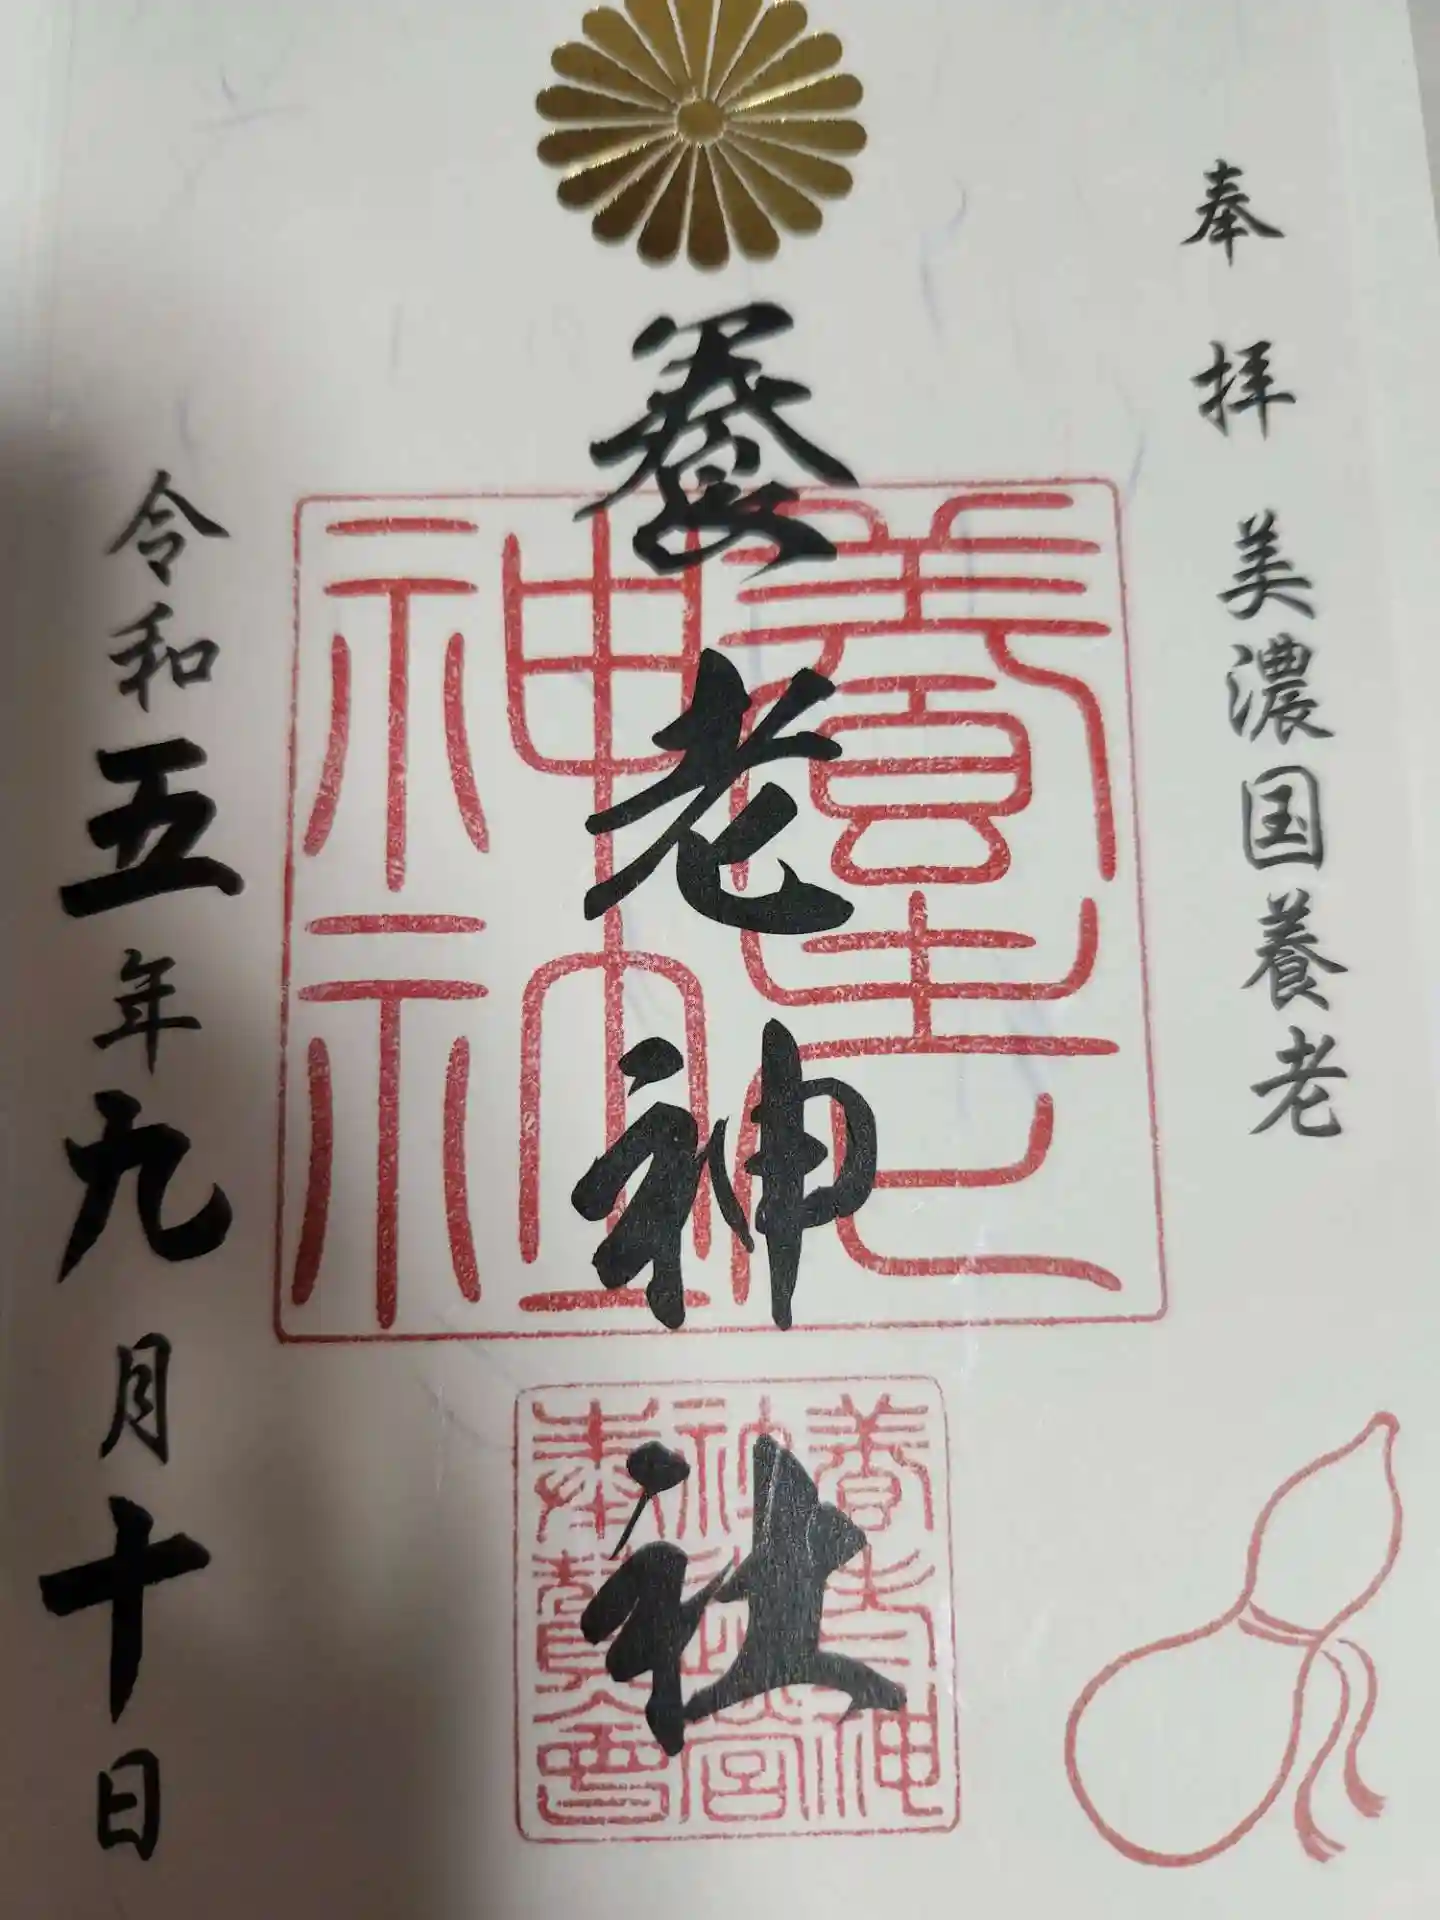 奉拝 美濃国養老
養老神社
養老神社
養老神
社造営
奉賛会
令和五年九月十日